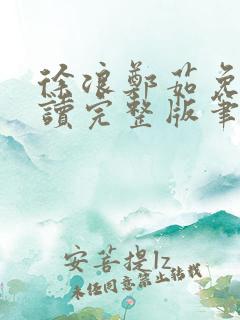 徐浪鄭茹免
讀完整版筆
安菩提lz
未经同意禁止转载